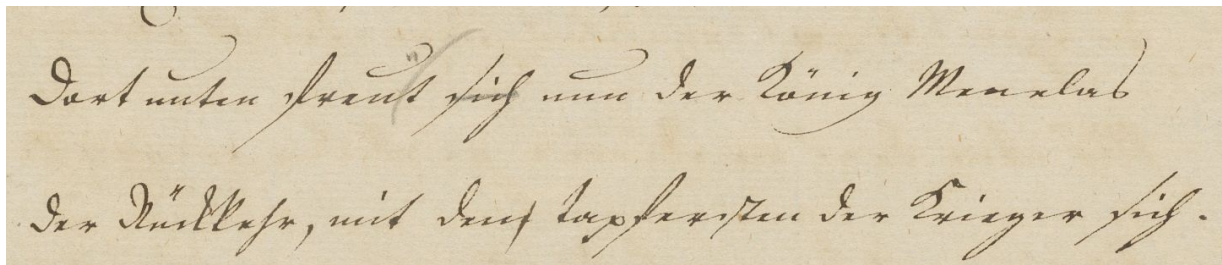 Dort unten freut sich nun der König Menelas
der Rückkehr, mit den tapfersten der Krieger sich.